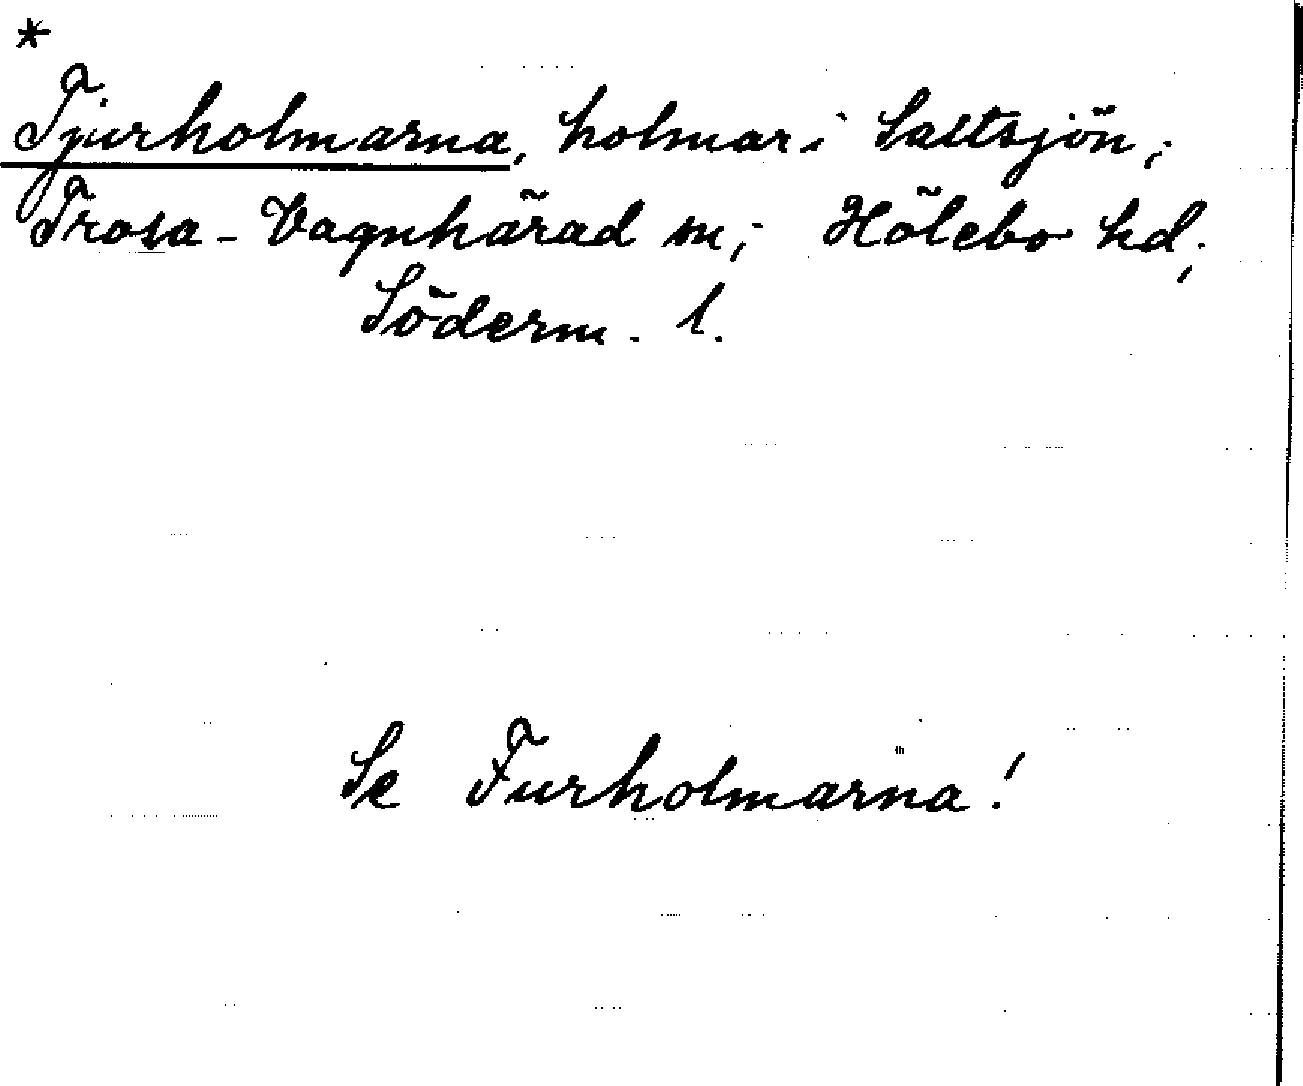 *
Tjurholmarna, holmar i Saltsjön;
Trosa-Vagnhärad sn; Hölebo hd;
Söderm. l.
Se Furholmarna!